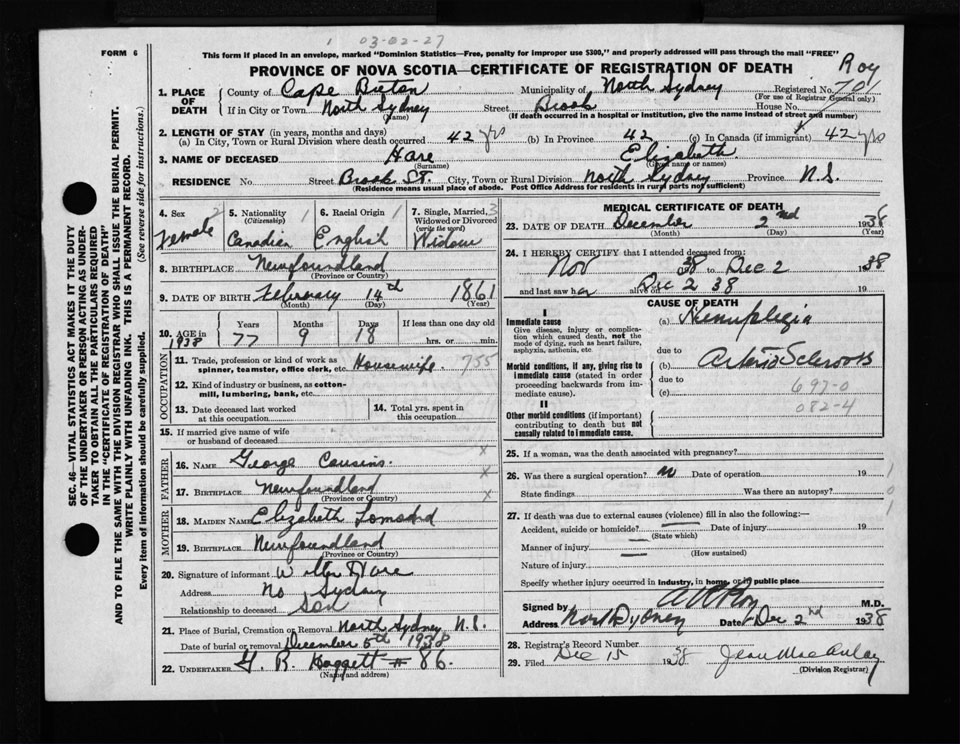 1 03-02-27
FORM 6
This form if placed in an envelope, marked "Dominion Statistics—Free, penalty for improper use $300," and properly addressed will pass through the mail "FREE"
PROVINCE OF NOVA SCOTIA—CERTIFICATE OF REGISTRATION OF DEATH
Roy
SEC. 46—VITAL STATISTICS ACT MAKES IT THE DUTY
OF THE UNDERTAKER OR PERSON ACTING AS UNDER-
TAKER TO OBTAIN ALL THE PARTICULARS REQUIRED
IN THE "CERTIFICATE OF REGISTRATION OF DEATH"
AND TO FILE THE SAME WITH THE DIVISION REGISTRAR WHO SHALL ISSUE THE BURIAL PERMIT.
WRITE PLAINLY WITH UNFADING INK. THIS IS A PERMANENT RECORD.
Every item of information should be carefully supplied. (See reverse side for instructions.)
1. PLACE OF DEATH
County of Cape Breton Municipality of North Sydney Registered No.
(For use of Registrar General only)
If in City or Town North Sydney Street Brook House No.
(Name) (If death occurred in a hospital or institution, give the name instead of street and number)
2. LENGTH OF STAY (in years, months and days)
(a) In City, Town or Rural Division where death occurred 42 yrs (b) In Province 42 (c) In Canada (if immigrant) 42 yrs
3. NAME OF DECEASED Hare Elizabeth
(Surname) (Given name or names)
RESIDENCE No. Street Brook St. City, Town or Rural Division North Sydney Province N.S.
(Residence means usual place of abode. Post Office Address for residents in rural parts not sufficient)
4. Sex 2 Female
5. Nationality (Citizenship) 1 Canadian
6. Racial Origin 1 English
7. Single, Married, Widowed or Divorced (write the word) 3 Widow
8. BIRTHPLACE Newfoundland
(Province or Country)
9. DATE OF BIRTH February 14th 1861
(Month) (Day) (Year)
10. AGE in 1938 Years 77 Months 9 Days 18 If less than one day hrs. or min.
OCCUPATION
11. Trade, profession or kind of work as spinner, teamster, office clerk, etc. Housewife. 755
12. Kind of industry or business, as cotton-mill, lumbering, bank, etc.
13. Date deceased last worked at this occupation
14. Total yrs. spent in this occupation
15. If married give name of wife or husband of deceased
FATHER
16. NAME George Cousins.
17. BIRTHPLACE Newfoundland
(Province or Country)
MOTHER
18. MAIDEN NAME Elizabeth
19. BIRTHPLACE Newfoundland
(Province or Country)
20. Signature of informant Walter Hare
Address No Sydney
Relationship to deceased Son
21. Place of Burial, Cremation or Removal North Sydney N.S.
Date of burial or removal December 5th 1938
22. UNDERTAKER # 86.
(Name and address)
MEDICAL CERTIFICATE OF DEATH
23. DATE OF DEATH December 2nd 1938
(Month) (Day) (Year)
24. I HEREBY CERTIFY that I attended deceased from:
Nov 38 to Dec 2 1938
and last saw her alive on Dec 2 38 19
CAUSE OF DEATH
I
Immediate cause
Give disease, injury or complica-
tion which caused death, not the
mode of dying, such as heart failure,
asphyxia, asthenia, etc
(a) Hemiplegia
due to
Morbid conditions, if any, giving rise to
immediate cause (stated in order
proceeding backwards from im-
mediate cause).
(b) Arterio Sclerosis
due to
(c) 697-0
082-4
II
Other morbid conditions (if important)
contributing to death but not
causally related to immediate cause.
25. If a woman, was the death associated with pregnancy?
26. Was there a surgical operation? no Date of operation 19 1
State findings Was there an autopsy? 0
1
27. If death was due to external causes (violence) fill in also the following:—
Accident, suicide or homicide? Date of injury 19
(State which)
Manner of injury
(How sustained)
Nature of injury
Specify whether injury occurred in industry, in home, or in public place
Signed by Roy M.D.
Address North Sydney Date Dec 2nd 1938
28. Registrar's Record Number
29. Filed Dec 15 1938 Jean MacAulay
(Division Registrar)